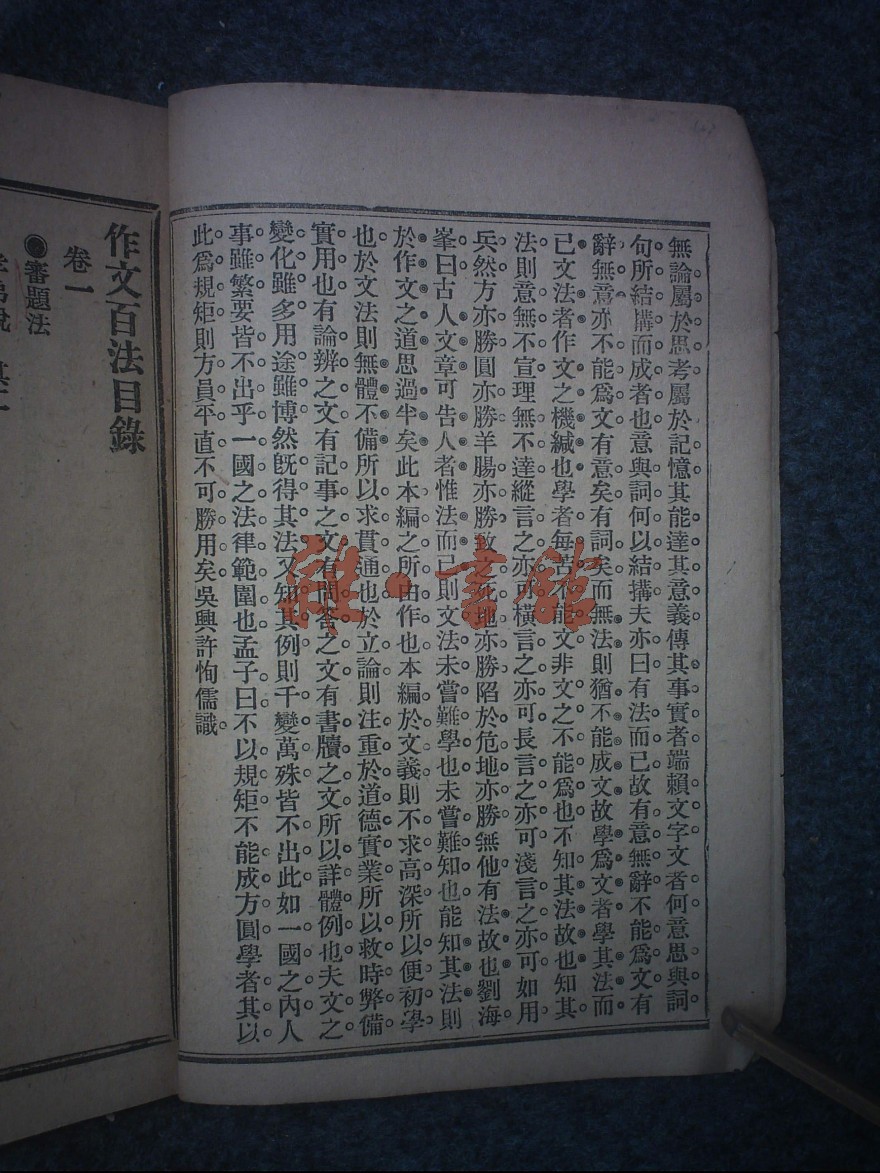 無論屬於思考屬於記憶其能達其意義傳其事實者端賴文字文者何意思與詞
句所結搆而成者也意與詞何以結搆夫亦曰有法而已故有意無辭不能爲文有
辭無意亦不能爲文有意矣有詞矣而無法則猶不能成文故學爲文者學其法而
已文法者作文之機緘也學者每苦不能文非文之不能爲也不知其法故也知其
法則意無不宣理無不達縱言之亦可橫言之亦可長言之亦可淺言之亦可如用
兵然方亦勝圓亦勝羊腸亦勝致之死地亦勝陷於危地亦勝無他有法故也劉海
峯曰古人文章可告人者惟法而已則文法未嘗難學也未嘗難知也能知其法則
於作文之道思過半矣此本編之所由作也本編於文義則不求高深所以便初學
也於文法則無體不備所以求貫通也於立論則注重於道德實業所以救時弊備
實用也有論辨之文有記事之文有問答之文有書牘之文所以詳體例也夫文之
變化雖多用途雖博然旣得其法又知其例則千變萬殊皆不出此如一國之內人
事雖繁要皆不出乎一國之法律範圍也孟子曰不以規矩不能成方圓學者其以
此爲規矩則方員平直不可勝用矣吳興許恂儒識
作文百法目錄
卷一
審題法
雜·書館